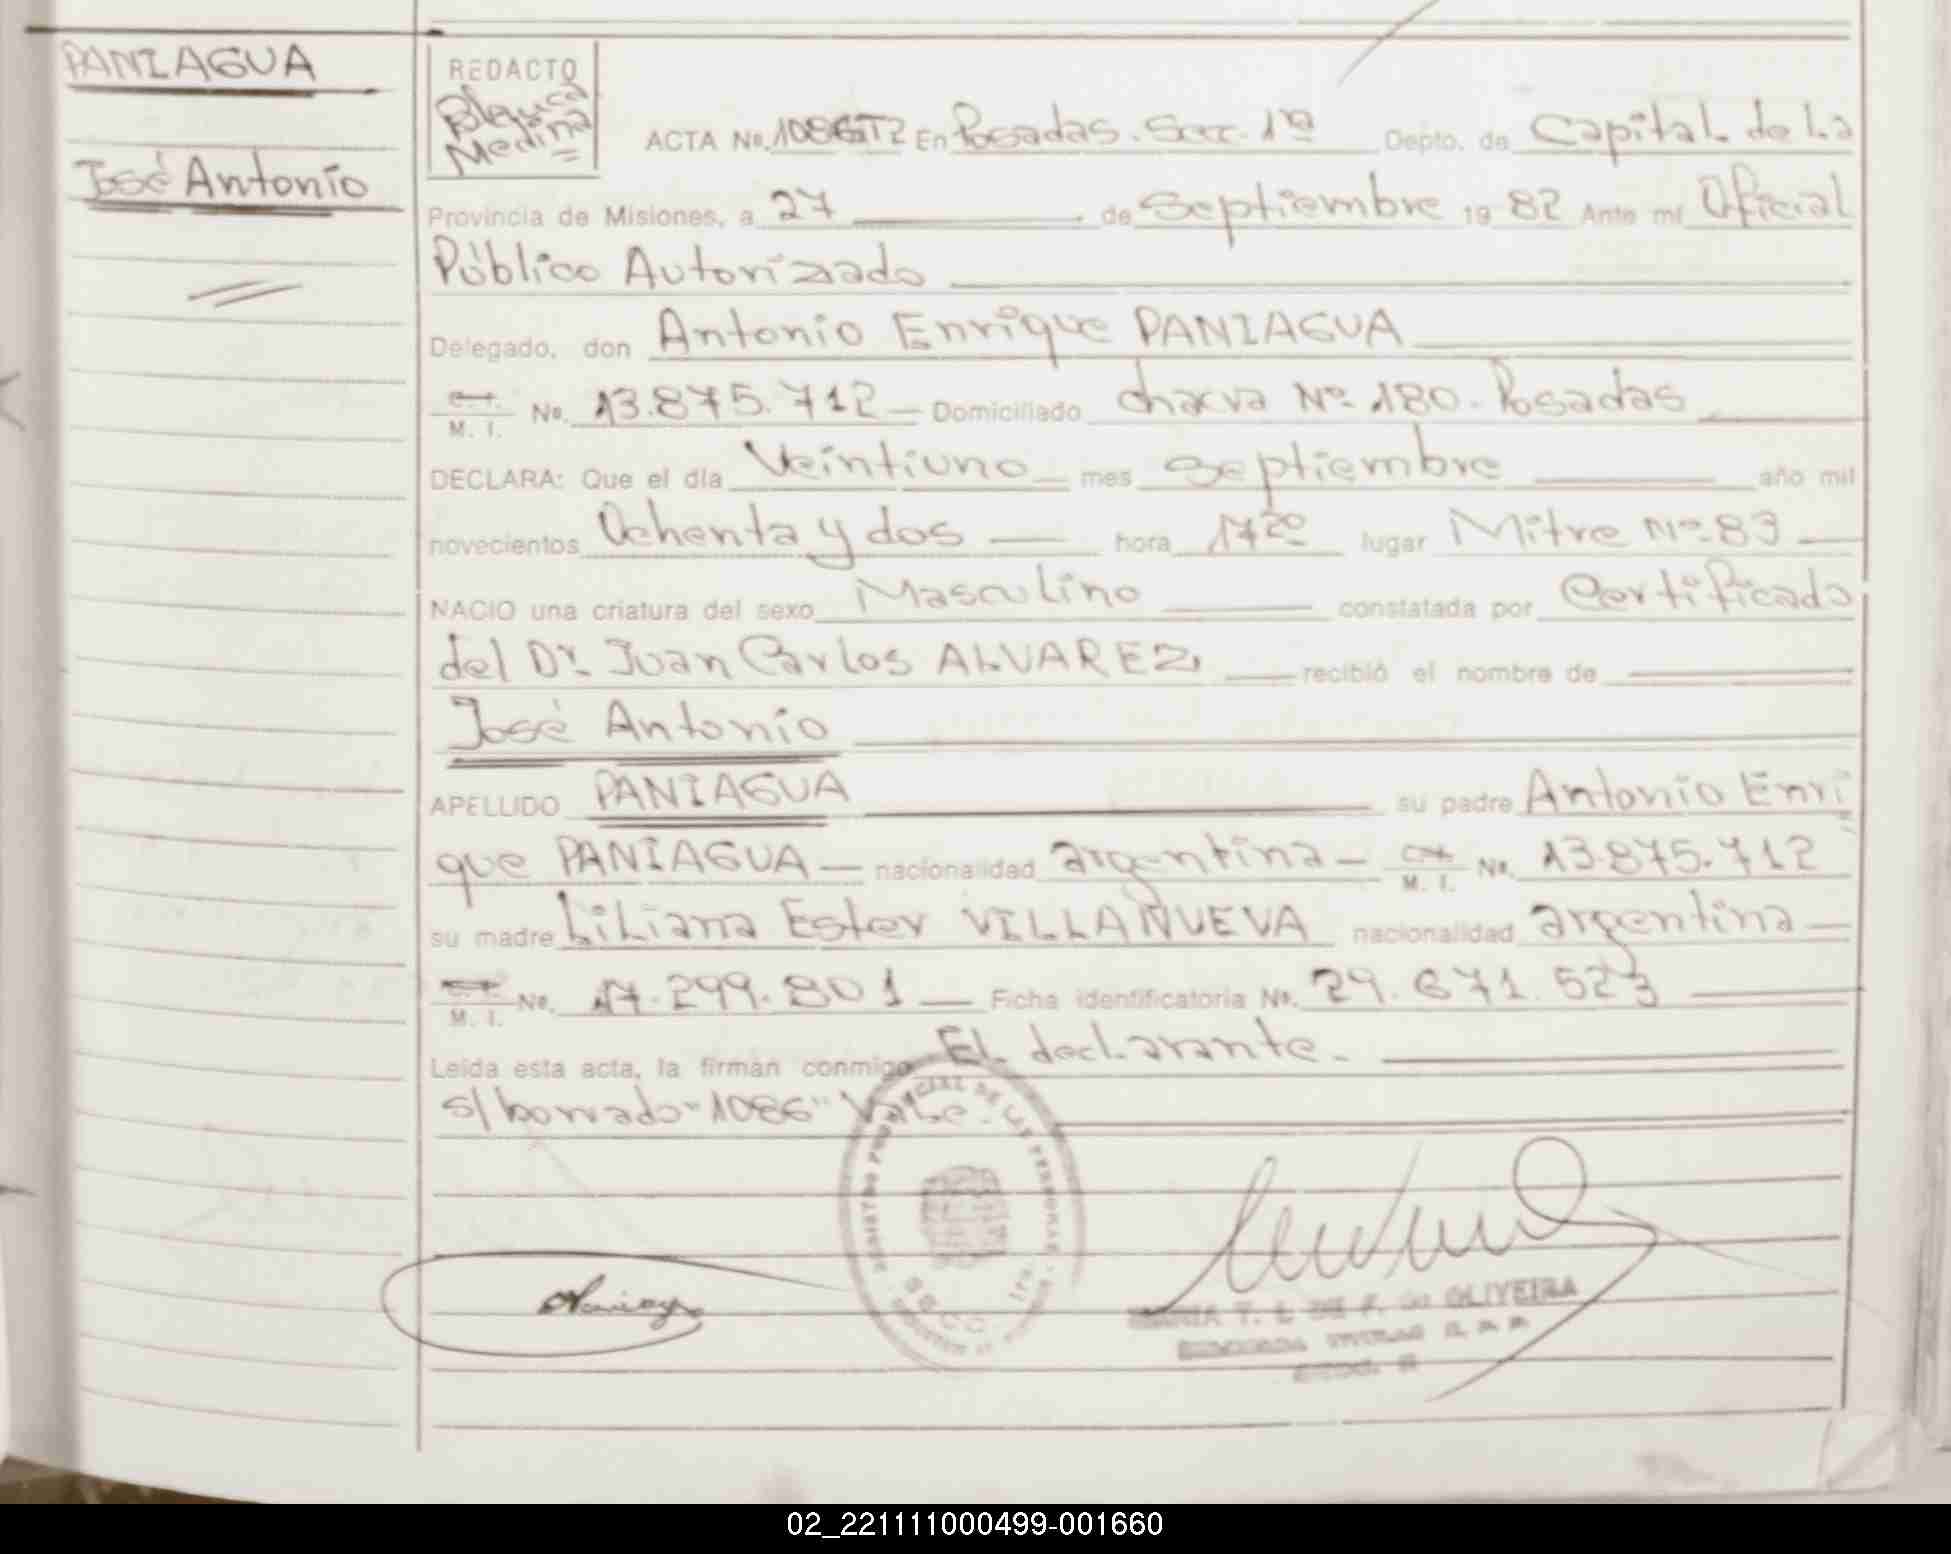 PANIAGUA
José Antonio
REDACTO
Blanca
Medina
ACTA No. 1086T2 En Posadas. Secc. 1ra Depto. de Capital de la
Provincia de Misiones, a 27 de Septiembre 19 82 Ante mí Oficial
Público Autorizado
Delegado, don Antonio Enrique PANIAGUA
C.I. M. I. No. 13.875.712 Domiciliado chacra Nº 180. Posadas
DECLARA: Que el día Veintiuno mes Septiembre año mil
novecientos Ochenta y dos hora 17 20 lugar Mitre Nº 83
NACIO una criatura del sexo Masculino constatada por Certificado
del Dr. Juan Carlos ALVAREZ, recibió el nombre de
José Antonio
APELLIDO PANIAGUA su padre Antonio Enri
que PANIAGUA nacionalidad argentina C.I. M. I. No. 13.875.712
su madre Liliana Ester VILLANUEVA nacionalidad argentina
C.I. M. I. No. 17.299.801 Ficha identificatoria No. 29.671.523
Leída esta acta, la firman conmigo El declarante.
s/borrado "1086" Vale.
REGISTRO PROVINCIAL DE LAS PERSONAS
SECC. 1ra.
MARIA T. L. DE F. DO OLIVEIRA
02_221111000499-001660